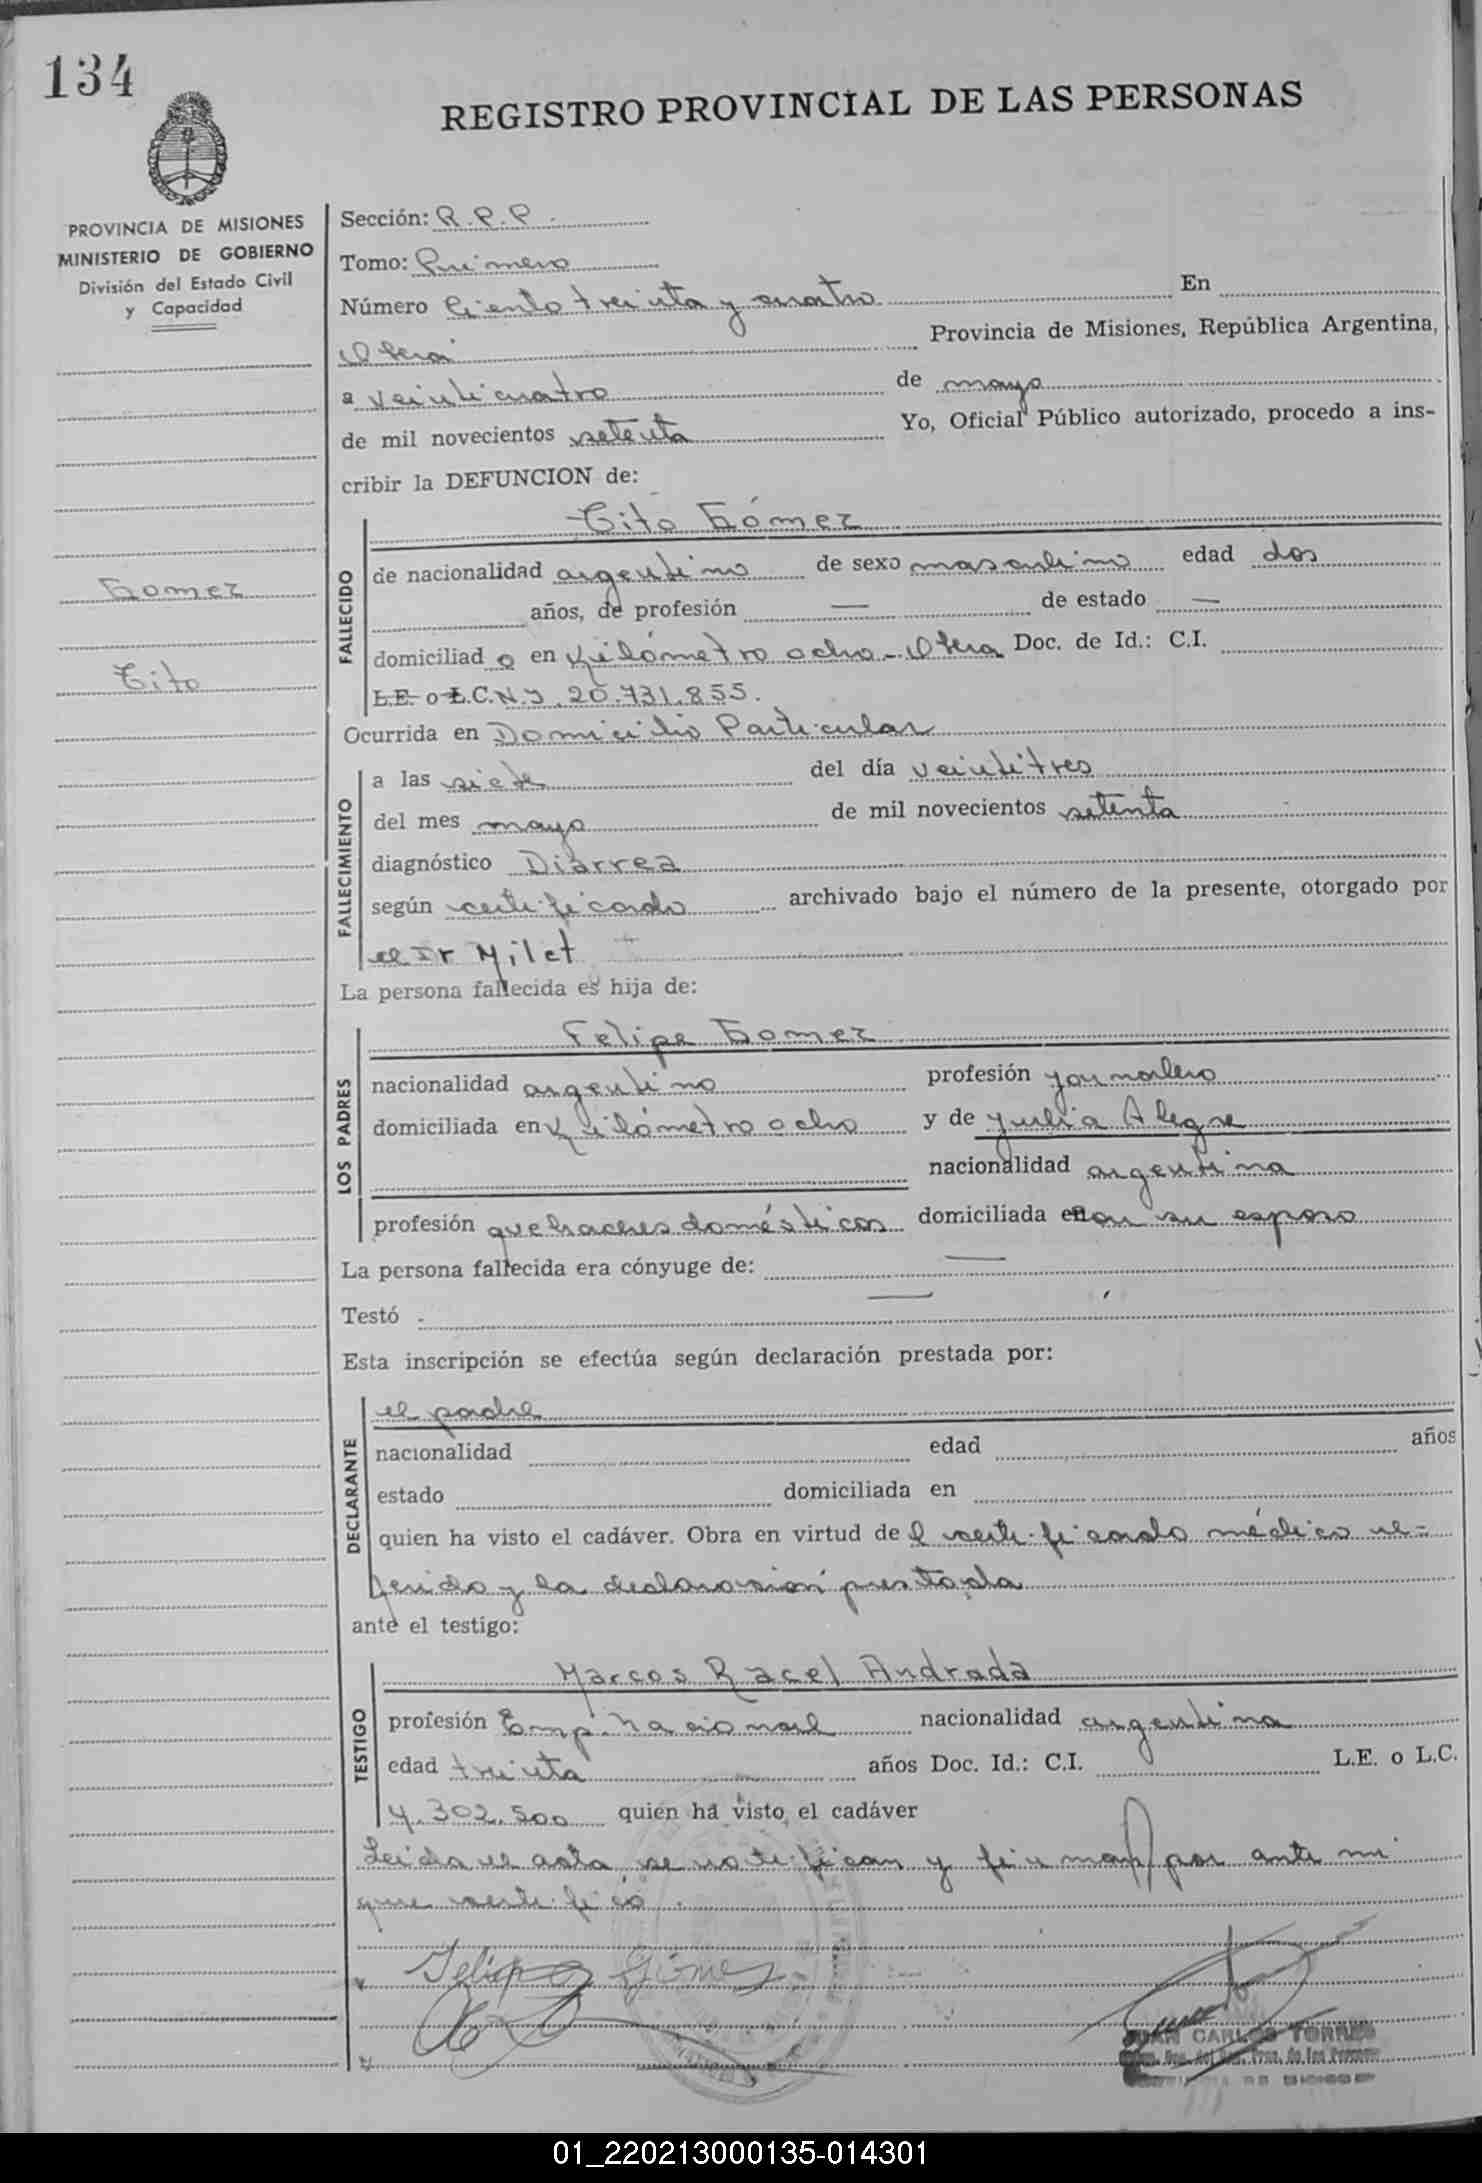 134
REGISTRO PROVINCIAL DE LAS PERSONAS
PROVINCIA DE MISIONES
MINISTERIO DE GOBIERNO
División del Estado Civil
y Capacidad
Gomez
Tito
Sección: R.P.P.
Tomo: Primero
Número Ciento treinta y cuatro En
Oberá Provincia de Misiones, República Argentina,
a veinticuatro de mayo
de mil novecientos setenta Yo, Oficial Público autorizado, procedo a ins-
cribir la DEFUNCION de:
FALLECIDO
Tito Gómez
de nacionalidad argentino de sexo masculino edad dos
años, de profesión — de estado —
domiciliad o en Kilómetro ocho - Obera Doc. de Id.: C.I.
L.E. o L.C. N.I. 20.731.855.
Ocurrida en Domicilio Particular
FALLECIMIENTO
a las siete del día veintitres
del mes mayo de mil novecientos setenta
diagnóstico Diarrea
según certificado archivado bajo el número de la presente, otorgado por
el Dr Milet
La persona fallecida es hija de:
LOS PADRES
Felipe Gomez
nacionalidad argentino profesión jornalero
domiciliada en Kilómetro ocho y de Julia Alegre
nacionalidad argentina
profesión quehaceres domésticos domiciliada en con su esposo
La persona fallecida era cónyuge de: —
Testó . —
Esta inscripción se efectúa según declaración prestada por:
DECLARANTE
el padre
nacionalidad edad años
estado domiciliada en
quien ha visto el cadáver. Obra en virtud de l certificado médico re-
ferido y la declaración prestada
ante el testigo:
TESTIGO
Marcos Racel Andrada
profesión Emp. Nacional nacionalidad argentina
edad treinta años Doc. Id.: C.I. L.E. o L.C.
4.302.500 quien ha visto el cadáver
Leida el acta se notifican y firman por ante mi
que certifico.
Felipe Gómes
JUAN CARLOS TORRES
01_220213000135-014301